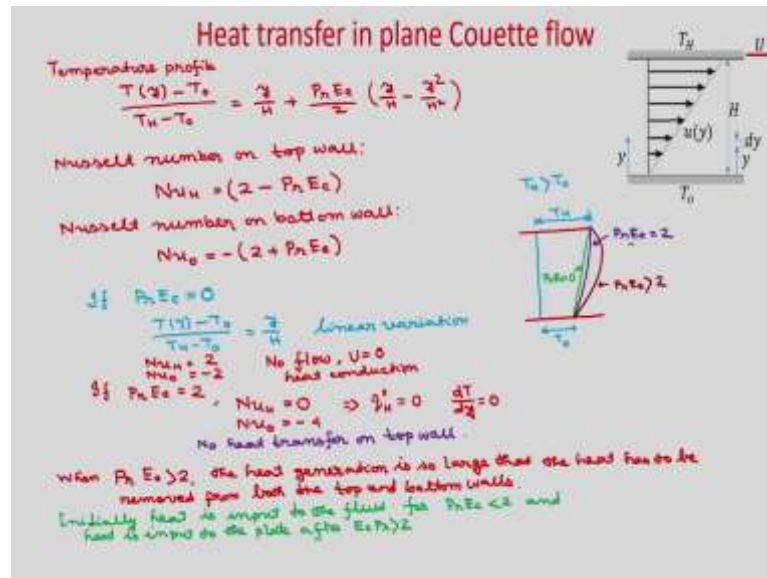 Heat transfer in plane Couette flow
Temperature profile
T(y) - T₀ / T_H - T₀ = y/H + PrEc/2 (y/H - y²/H²)
Nusselt number on top wall:
Nu_H = (2 - PrEc)
Nusselt number on bottom wall:
Nu₀ = -(2 + PrEc)
If PrEc = 0
T(y) - T₀ / T_H - T₀ = y/H linear variation
Nu_H = 2 No flow, U = 0
Nu₀ = -2 heat conduction
If PrEc = 2, Nu_H = 0 ⇒ q''_H = 0 dT/dy = 0
Nu₀ = -4
No heat transfer on top wall.
When Pr Ec > 2, the heat generation is so large that the heat has to be
removed from both the top and bottom walls.
Initially heat is input to the fluid for PrEc < 2 and
heat is input to the plate after EcPr > 2
T_H
U
H
u(y)
dy
y
y
T₀
T_H > T₀
T_H
PrEc = 2
PrEc = 0
PrEc > 2
T₀